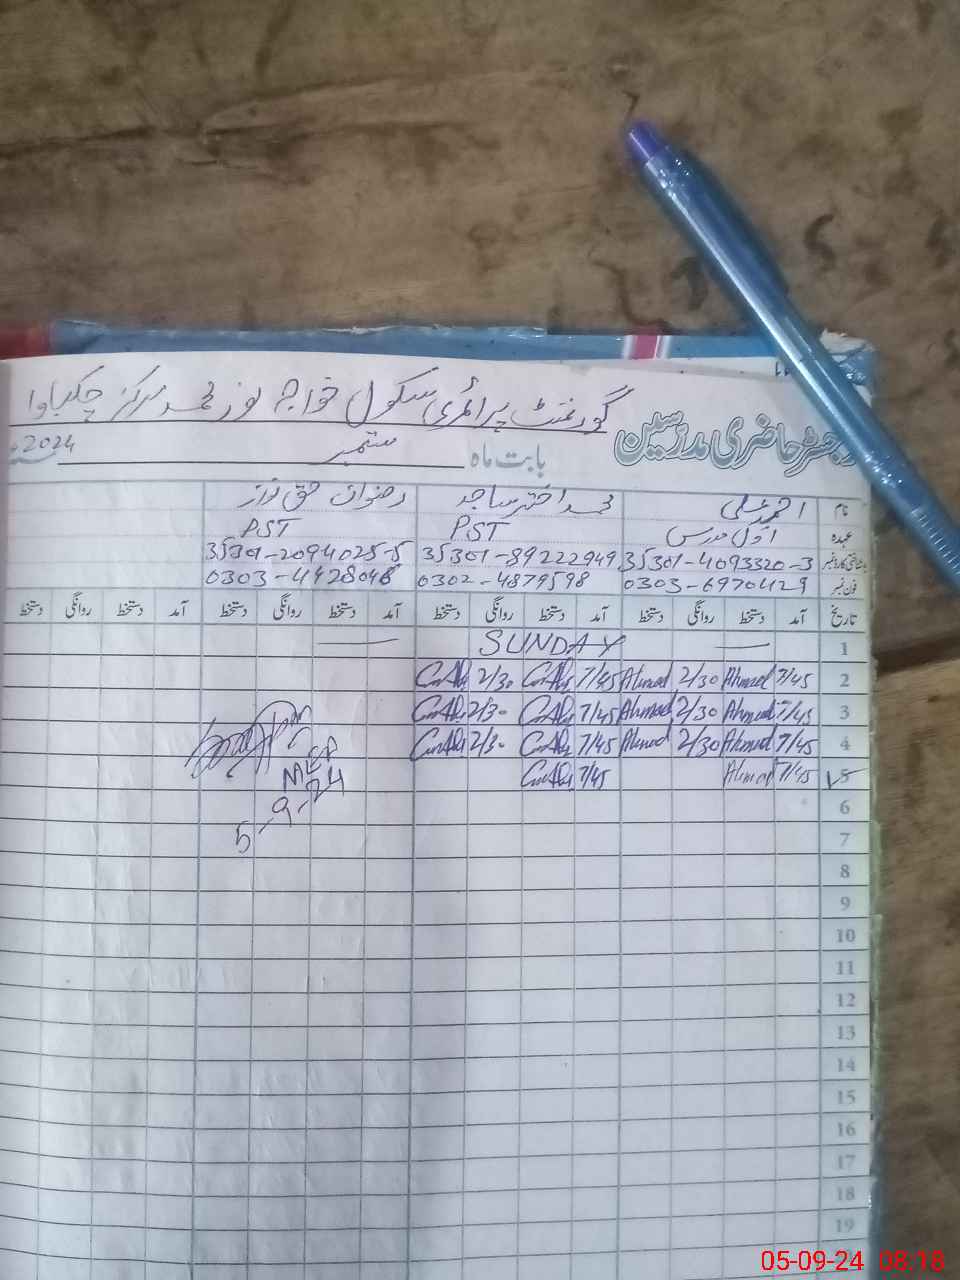 گورنمنٹ پرائمری سکول خواجہ نور محمد مرکز چکباوا
رجسٹر حاضری مدرسین
بابت ماہ ستمبر 2024
نام احمد علی محمد اختر ساجد رضوان حق نواز
عہدہ اول مدرس PST PST
شناختی کارڈ نمبر 35301-4093320-3 35301-89222949 35301-2094025-5
فون نمبر 0303-6970429 0302-4879598 0303-4428048
تاریخ آمد دستخط روانگی دستخط آمد دستخط روانگی دستخط آمد دستخط روانگی دستخط آمد دستخط روانگی دستخط
1 — SUNDAY —
2 7/45 Ahmad 2/30 Ahmad 7/45 2/30
3 7/45 Ahmad 2/30 Ahmad 7/45 2/30
4 7/45 Ahmad 2/30 Ahmad 7/45 2/30
5 7/45 Ahmad 7/45
MEA
5-9-24
6
7
8
9
10
11
12
13
14
15
16
17
18
19
05-09-24 08:18